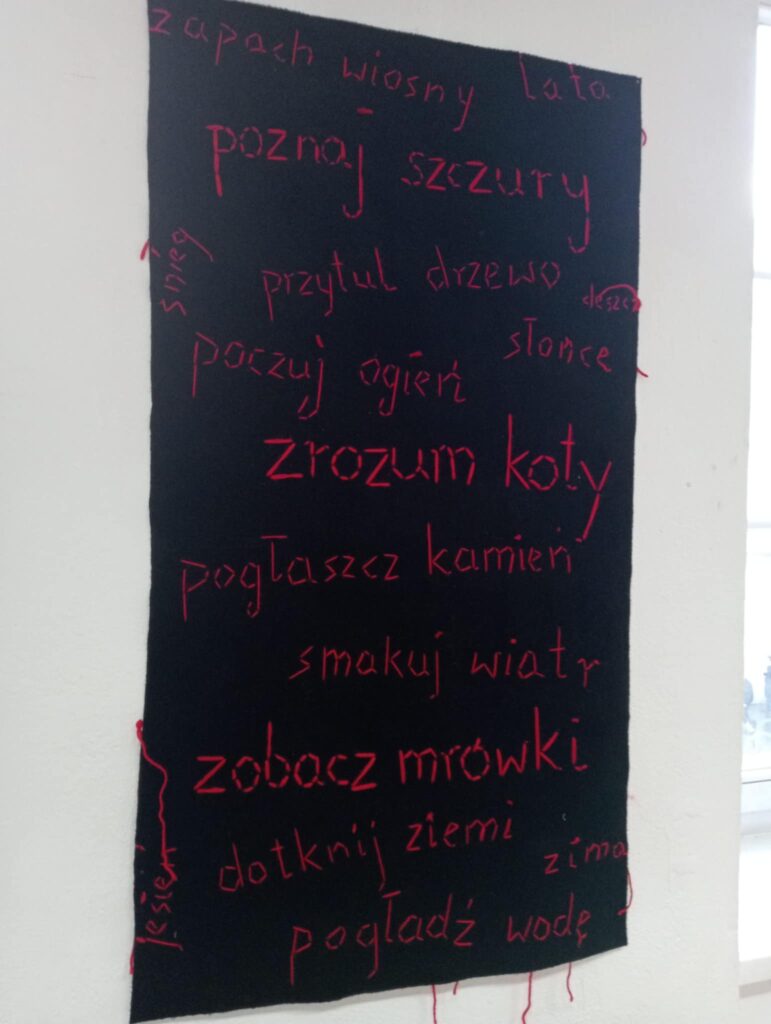 zapach wiosny lata
poznaj szczury
śnieg
przytul drzewo
deszcz
słońce
poczuj ogień
zrozum koty
pogłaszcz kamień
smakuj wiatr
zobacz mrówki
dotknij ziemi
zima
jesień
pogładź wodę